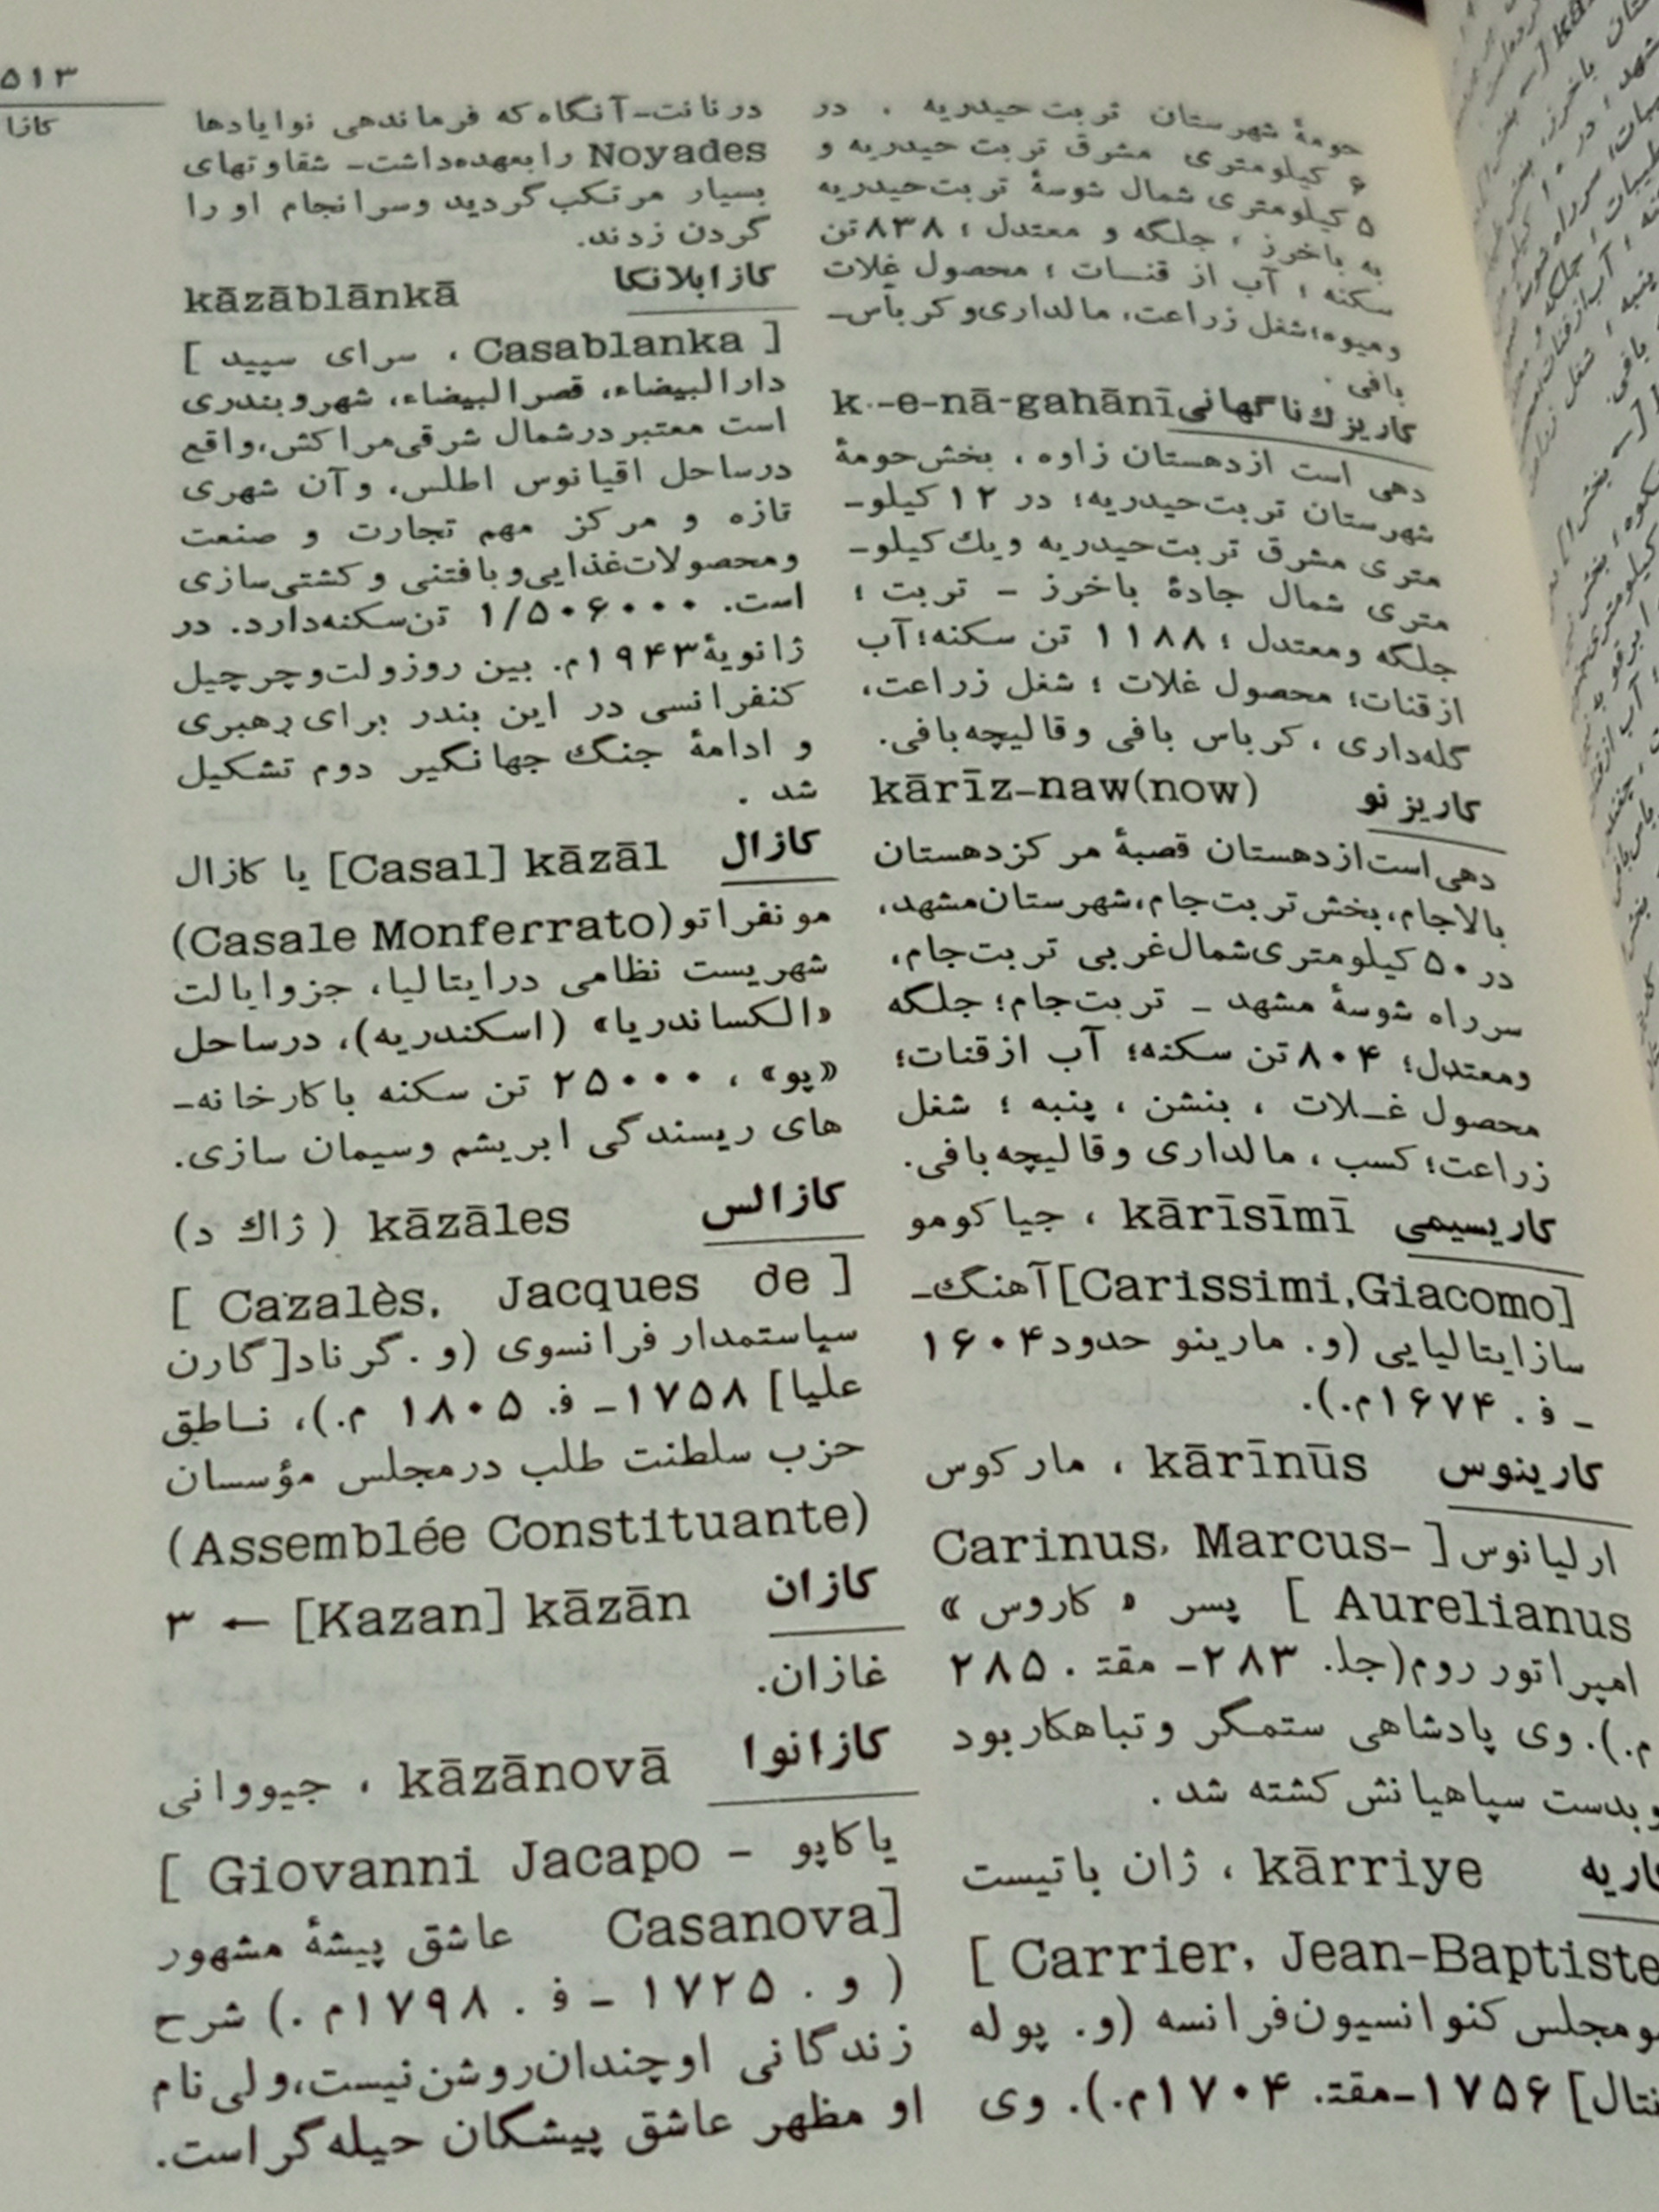 ۵۱۳
کازا
حومهٔ شهرستان تربت حیدریه . در
۶ کیلومتری مشرق تربت حیدریه و
۵ کیلومتری شمال شوسهٔ تربت‌حیدریه
به باخرز ، جلگه و معتدل ؛ ۸۳۸ تن
سکنه ؛ آب از قنـات ؛ محصول غلات
ومیوه؛ شغل زراعت، مالداری‌و کرباس-
بافی .
کاریزك ناگهانی k.-e-nā-gahānī
دهی است ازدهستان زاوه ، بخش‌حومهٔ
شهرستان تربت‌حیدریه؛ در ۱۲ کیلو-
متری مشرق تربت‌حیدریه ویك کیلو-
متری شمال جادهٔ باخرز - تربت ؛
جلگه ومعتدل ؛ ۱۱۸۸ تن سکنه؛ آب
ازقنات؛ محصول غلات ؛ شغل زراعت،
گله‌داری ، کرباس بافی وقالیچه‌بافی.
کاریز نو kārīz-naw(now)
دهی‌است‌ازدهستان قصبهٔ مرکزدهستان
بالاجام، بخش‌تربت‌جام، شهرستان‌مشهد،
در ۵۰ کیلومتری‌شمال‌غربی تربت‌جام،
سرراه شوسهٔ مشهد - تربت‌جام؛ جلگه
ومعتدل؛ ۸۰۴ تن سکنه؛ آب ازقنات؛
محصول غـلات ، بنشن ، پنبه ؛ شغل
زراعت؛ کسب ، مالداری وقالیچه‌بافی.
کاریسیمی kārīsīmī ، جیاکومو
[Carissimi,Giacomo] آهنگ-
سازایتالیایی (و. مارینو حدود۱۶۰۴
- ف . ۱۶۷۴م.).
کارینوس kārīnūs ، مارکوس
ارلیانوس [ Carinus, Marcus-
Aurelianus ] پسر « کاروس »
امپراتور روم(جل. ۲۸۳- مقتـ . ۲۸۵
م.). وی پادشاهی ستمگر وتباهکاربود
وبدست سپاهیانش کشته شد .
کاریه kārriye ، ژان باتیست
[ Carrier, Jean-Baptiste
ومجلس کنوانسیون‌فرانسه (و. یوله
نتال] ۱۷۵۶-مقتـ. ۱۷۰۴م.). وی
درنانت-آنگاه‌که فرماندهی نوایادها
Noyades رابعهده‌داشت- شقاوتهای
بسیار مرتکب‌گردید وسرانجام اورا
گردن زدند.
کازابلانکا kāzāblānkā
[ Casablanka ، سرای سپید ]
دارالبیضاء، قصرالبیضاء، شهروبندری
است معتبر درشمال شرقی‌مراکش،واقع
درساحل اقیانوس اطلس، وآن شهری
تازه و مرکز مهم تجارت و صنعت
ومحصولات‌غذایی‌وبافتنی وکشتی‌سازی
است. ۱/۵۰۶۰۰۰ تن‌سکنه‌دارد. در
ژانویهٔ۱۹۴۳م. بین روزولت‌وچرچیل
کنفرانسی در این بندر برای رهبری
و ادامهٔ جنگ جهانگیر دوم تشکیل
شد .
کازال kāzāl [Casal] یا کازال
مونفراتو (Casale Monferrato)
شهریست نظامی درایتالیا، جزوایالت
«الکساندریا» (اسکندریه)، درساحل
«پو» ، ۲۵۰۰۰ تن سکنه باکارخانه-
های ریسندگی ابریشم وسیمان سازی.
کازالس kāzāles ( ژاك د)
[ Cazalès, Jacques de ]
سیاستمدار فرانسوی (و. گرناد[گارن
علیا] ۱۷۵۸- ف. ۱۸۰۵ م.)، نـاطق
حزب سلطنت طلب درمجلس مؤسسان
(Assemblée Constituante)
کازان kāzān [Kazan] ← ۳
غازان.
کازانوا kāzānovā ، جیووانی
یاکاپو [ Giovanni Jacapo -
Casanova] عاشق پیشهٔ مشهور
( و . ۱۷۲۵ - ف . ۱۷۹۸م .) شرح
زندگانی اوچندان‌روشن‌نیست، ولی نام
او مظهر عاشق پیشگان حیله‌گراست.